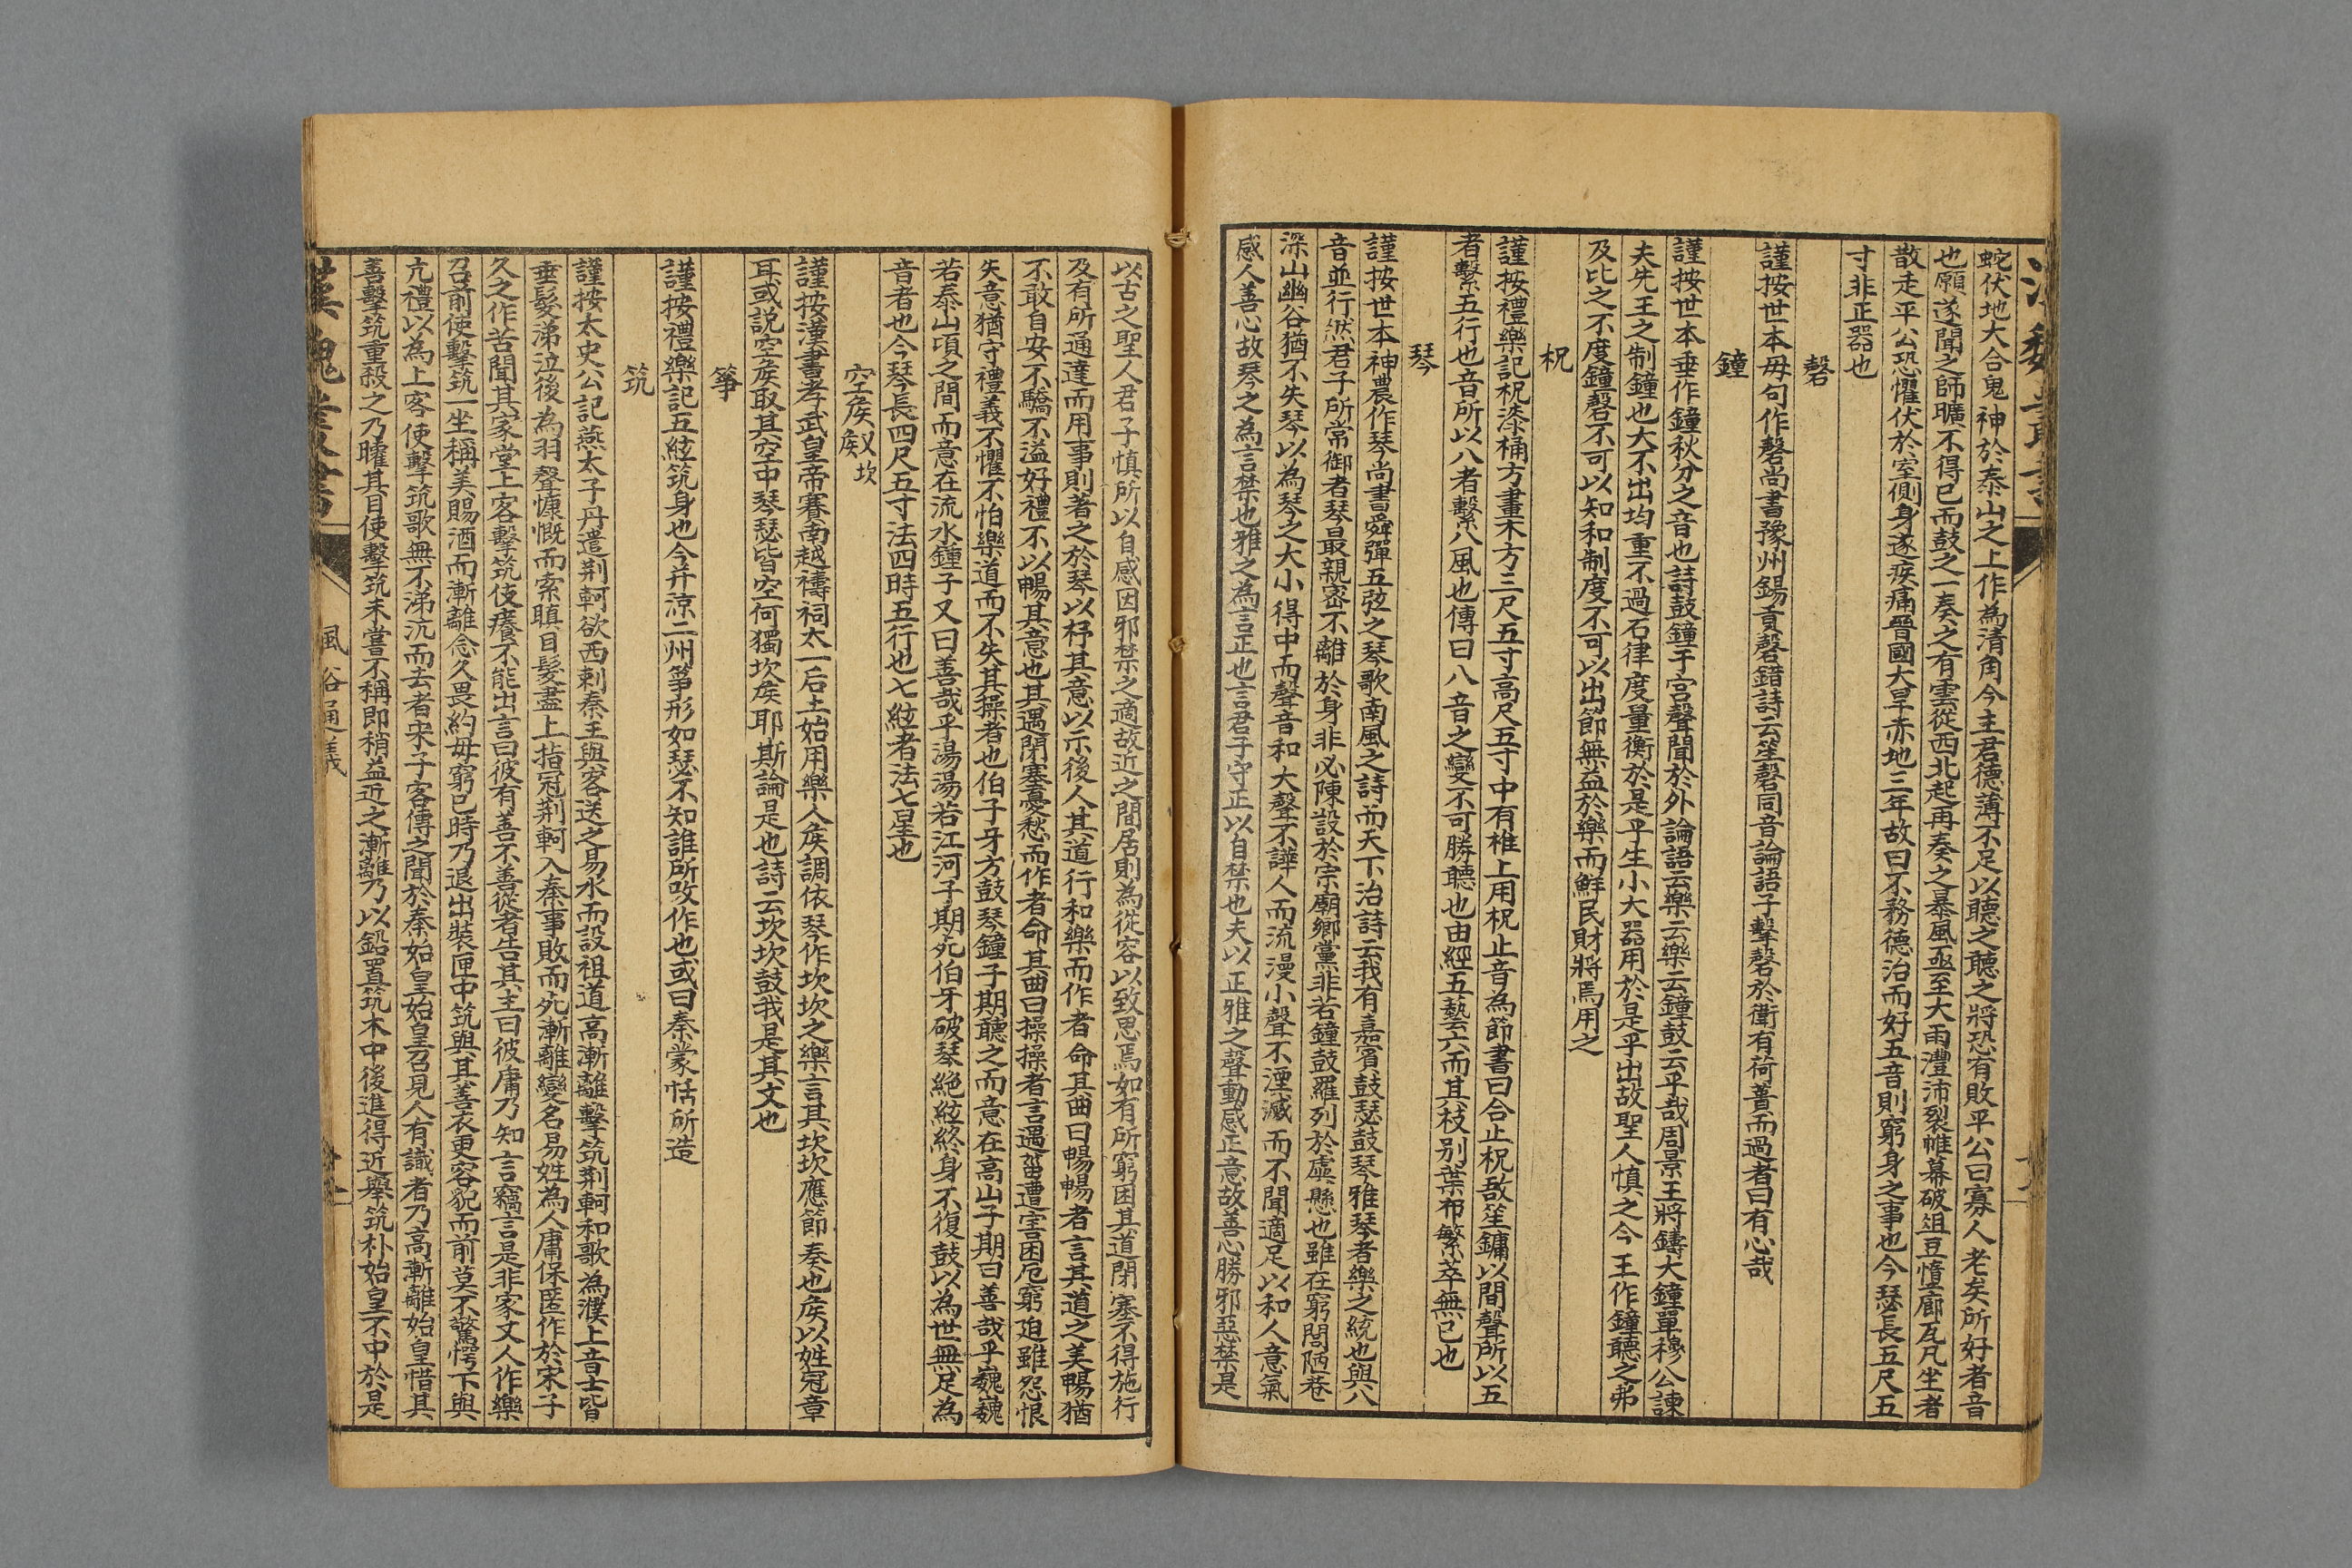 蛇伏地大合鬼神於泰山之上作為清角今主君德薄不足以聽之聽之將恐有敗平公曰寡人老矣所好者音
也願遂聞之師曠不得已而鼓之一奏之有雲從西北起再奏之暴風亟至大雨澧沛裂帷幕破俎豆墮廊瓦凡坐者
散走平公恐懼伏於室側身遂疾痛晉國大旱赤地三年故曰不務德治而好五音則窮身之事也今瑟長五尺五
寸非正器也
磬
謹按世本毋句作磬尚書豫州錫貢磬錯詩云笙磬同音論語子擊磬於衛有荷蕢而過者曰有心哉
鐘
謹按世本垂作鐘秋分之音也詩鼓鐘于宮聲聞於外論語云樂云樂云鐘鼓云乎哉周景王將鑄大鐘單穆公諫
夫先王之制鐘也大不出均重不過石律度量衡於是乎生小大器用於是乎出故聖人慎之今王作鐘聽之弗
及比之不度鐘磬不可以知和制度不可以出節無益於樂而鮮民財將焉用之
柷
謹按禮樂記柷漆桶方畫木方三尺五寸高尺五寸中有椎上用柷止音為節書曰合止柷敔笙鏞以間聲所以五
者繫五行也音所以八者繫八風也傳曰八音之變不可勝聽也由經五藝六而其枝別葉布繁萃無已也
琴
謹按世本神農作琴尚書舜彈五弦之琴歌南風之詩而天下治詩云我有嘉賓鼓瑟鼓琴雅琴者樂之統也與八
音並行然君子所常御者琴最親密不離於身非必陳設於宗廟鄉黨非若鐘鼓羅列於虡懸也雖在窮閻陋巷
深山幽谷猶不失琴以為琴之大小得中而聲音和大聲不譁人而流漫小聲不湮滅而不聞適足以和人意氣
感人善心故琴之為言禁也雅之為言正也言君子守正以自禁也夫以正雅之聲動感正意故善心勝邪惡禁是
以古之聖人君子慎所以自感因邪禁之適故近之間居則為從容以致思焉如有所窮困其道閉塞不得施行
及有所通達而用事則著之於琴以杼其意以示後人其道行和樂而作者命其曲曰暢暢者言其道之美暢猶
不敢自安不驕不溢好禮不以暢其意也其遇閉塞憂愁而作者命其曲曰操操者言遇菑遭害困厄窮迫雖怨恨
失意猶守禮義不懼不怕樂道而不失其操者也伯子牙方鼓琴鐘子期聽之而意在高山子期曰善哉乎巍巍
若泰山頃之間而意在流水鍾子又曰善哉乎湯湯若江河子期死伯牙破琴絕絃終身不復鼓以為世無足為
音者也今琴長四尺五寸法四時五行也七絃者法七星也
空矦 坎
謹按漢書孝武皇帝賽南越禱祠太一后土始用樂人矦調依琴作坎坎之樂言其坎坎應節奏也矦以姓冠章
耳或說空矦取其空中琴瑟皆空何獨坎矦耶斯論是也詩云坎坎鼓我是其文也
箏
謹按禮樂記五絃筑身也今并涼二州箏形如瑟不知誰所改作也或曰秦蒙恬所造
筑
謹按太史公記燕太子丹遣荆軻欲西刺秦王與客送之易水而設祖道高漸離擊筑荆軻和歌為濮上音士皆
垂髮涕泣後為羽聲慷慨而索瞋目髮盡上指冠荆軻入秦事敗而死漸離變名易姓為人庸保匿作於宋子
久之作苦聞其家堂上客擊筑伎癢不能出言曰彼有善不善從者告其主曰彼庸乃知言竊言是非家丈人作樂
召前使擊筑一坐稱美賜酒而漸離念久畏約毋窮已時乃退出裝匣中筑與其善衣更容貌而前莫不驚愕下與
亢禮以為上客使擊筑歌無不涕泣而去者宋子客傳之聞於秦始皇始皇召見人有識者乃高漸離始皇惜其
善擊筑重殺之乃矐其目使擊筑未嘗不稱即稍益近之漸離乃以鉛置筑木中後進得近舉筑朴始皇不中於是
漢魏叢書
風俗通義